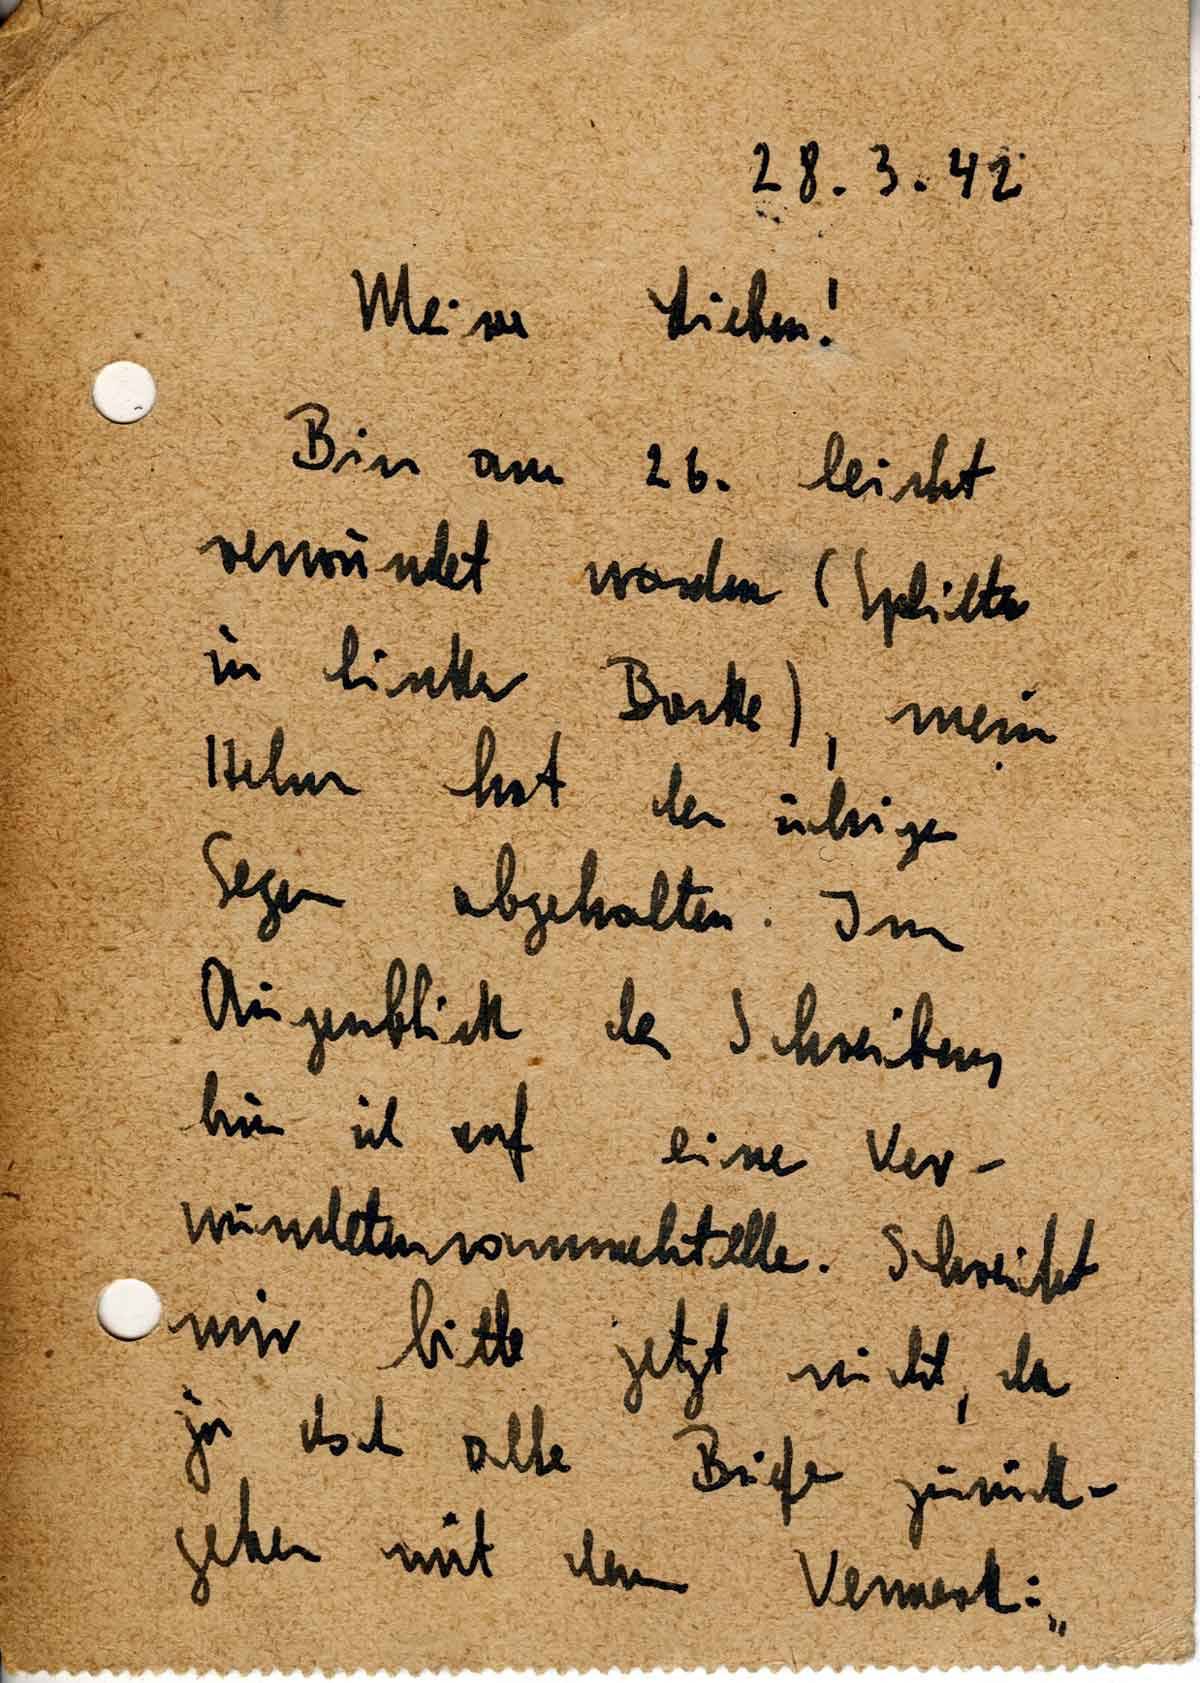 28.3.42
Meine Lieben!
Bin am 26. leicht
verwundet worden (Splitter
in linker Backe), mein
Helm hat den übrigen
Segen abgehalten. Im
Augenblick des Schreibens
bin ich auf eine Ver-
wundetensammelstelle. Schreibt
mir bitte jetzt nicht, da
ja doch alle Briefe zurück-
gehen mit dem Vermerk: „